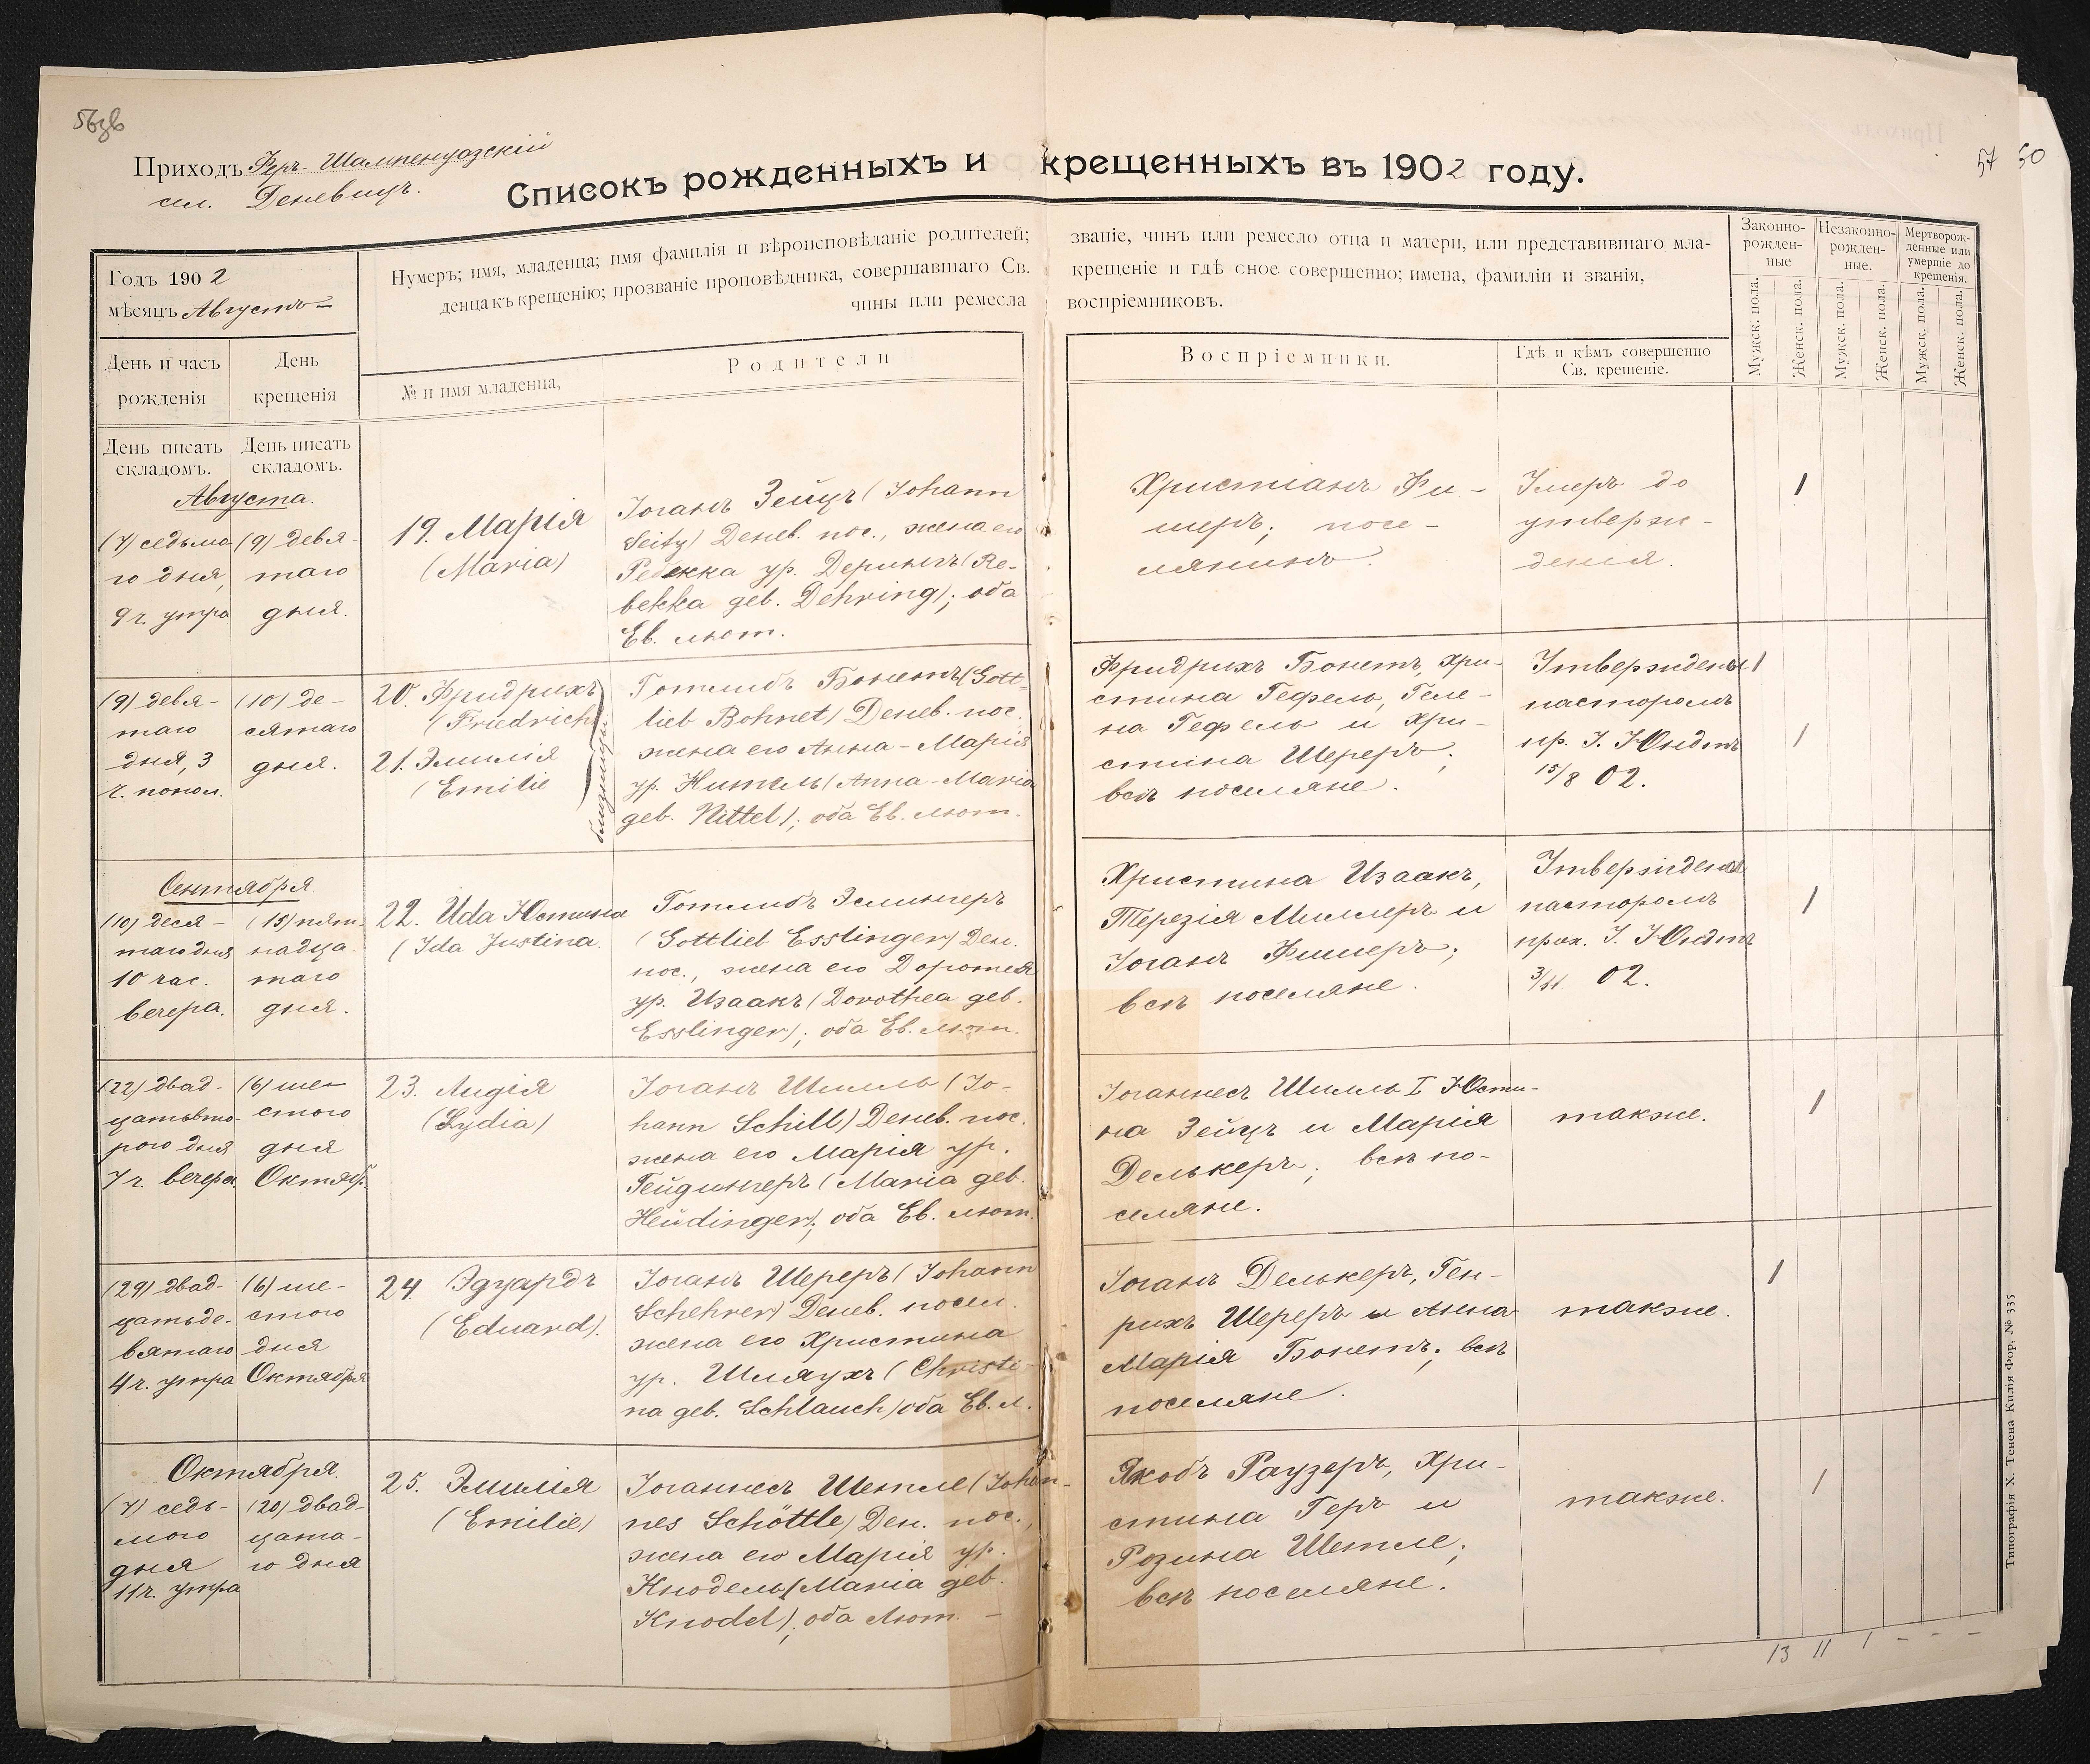 56зв
Приходъ Фер-Шампенуазскій
сел. Деневицъ.
Списокъ рожденныхъ и крещенныхъ въ 1902 году.
57 50
Годъ 1902
мѣсяцъ Августъ
День и часъ рожденія
День крещенія
Нумеръ; имя, младенца; имя фамилія и вѣроисповѣданіе родителей; званіе, чинъ или ремесло отца и матери, или представившаго мла-
денца къ крещенію; прозваніе проповѣдника, совершавшаго Св. крещеніе и гдѣ оное совершенно; имена, фамиліи и званія,
чины или ремесла воспріемниковъ.
№ и имя младенца,
Родители
Воспріемники.
Гдѣ и кѣмъ совершенно
Св. крещеніе.
Законно-
рожден-
ные
Незаконно-
рожден-
ные.
Мертворож-
денные или
умершіе до
крещенія.
Мужск. пола.
Женск. пола.
Мужск. пола.
Женск. пола.
Мужск. пола.
Женск. пола.
День писать
складомъ.
День писать
складомъ.
Августа.
(7) седьма-
го дня,
9 ч. утра
(9) девя-
таго
дня.
19. Марія
(Maria)
Іоганъ Зейцъ (Johann
Seitz) Денев. пос., жена его
Ребекка ур. Дерингъ (Re-
bekka geb. Dehring); оба
Ев. лют.
Христіанъ Фи-
шеръ; посе-
лянинъ.
Умеръ до
утверж-
денія.
1
(9) девя-
таго
дня, 3
ч. попол.
(10) де-
сятаго
дня.
20. Фридрихъ
(Friedrich
21. Эмилія
(Emilie
близнецы
Готлибъ Бонетъ (Gott-
lieb Bohnet) Денев. пос.
жена его Анна-Марія
ур. Нитель (Anna-Maria
geb. Nittel); оба Ев. лют.
Фридрихъ Бонетъ, Хри-
стина Гефель, Геле-
на Гефель и Хри-
стина Шереръ;
всѣ поселяне.
Утверждены
пасторомъ
пр. І. Юндтъ
15/8 02.
1
1
Сентября.
(10) деся-
таго дня
10 час.
вечера.
(15) пят-
надца-
таго
дня.
22. Ида Юстина
(Ida Justina.
Готлибъ Эслингеръ
(Gottlieb Esslinger) Ден.
пос., жена его Доротея
ур. Изаакъ (Dorothea geb.
Esslinger); оба Ев. лют.
Христина Изаакъ,
Терезія Миллеръ и
Іоганъ Фишеръ;
всѣ поселяне.
Утверждена
пасторомъ
прих. І. Юндтъ
3/11. 02.
1
(22) двад-
цатьвто-
рого дня
7 ч. вечера.
(6) ше-
стого
дня
Октябр.
23. Лидія
(Lydia)
Іоганъ Шилль (Jo-
hann Schill) Денев. пос.
жена его Марія ур.
Гейдингеръ (Maria geb.
Heidinger); оба Ев. лют.
Іоганнесъ Шилль I Юсти-
на Зейцъ и Марія
Делькеръ; всѣ по-
селяне.
также.
1
(29) двад-
цатьде-
вятаго
4 ч. утра
(6) ше-
стого
дня
Октября
24. Эдуардъ
(Eduard).
Іоганъ Шереръ (Johann
Schehrer) Денев. посел.
жена его Христина
ур. Шляухъ (Christi-
na geb. Schlauch) оба Ев. л.
Іоганъ Делькеръ, Ген-
рихъ Шереръ и Анна
Марія Бонетъ; всѣ
поселяне.
также.
1
Октября.
(7) седь-
мого
дня
11 ч. утра
(20) двад-
цата-
го дня
25. Эмилія
(Emilie)
Іоганнесъ Шетле (Johan-
nes Schöttle) Ден. пос.,
жена его Марія ур.
Кнодель (Maria geb.
Knodel); оба Лют. -
Якобъ Раузеръ, Хри-
стина Геръ и
Розина Шетле;
всѣ поселяне.
также.
1
13 11 1 - - -
Типографія Х. Тенена Килія Фор, № 335